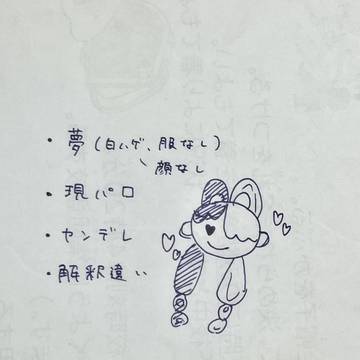 ・夢(白ハゲ、服なし)
顔なし
・現パロ
・ヤンデレ
・解釈違い